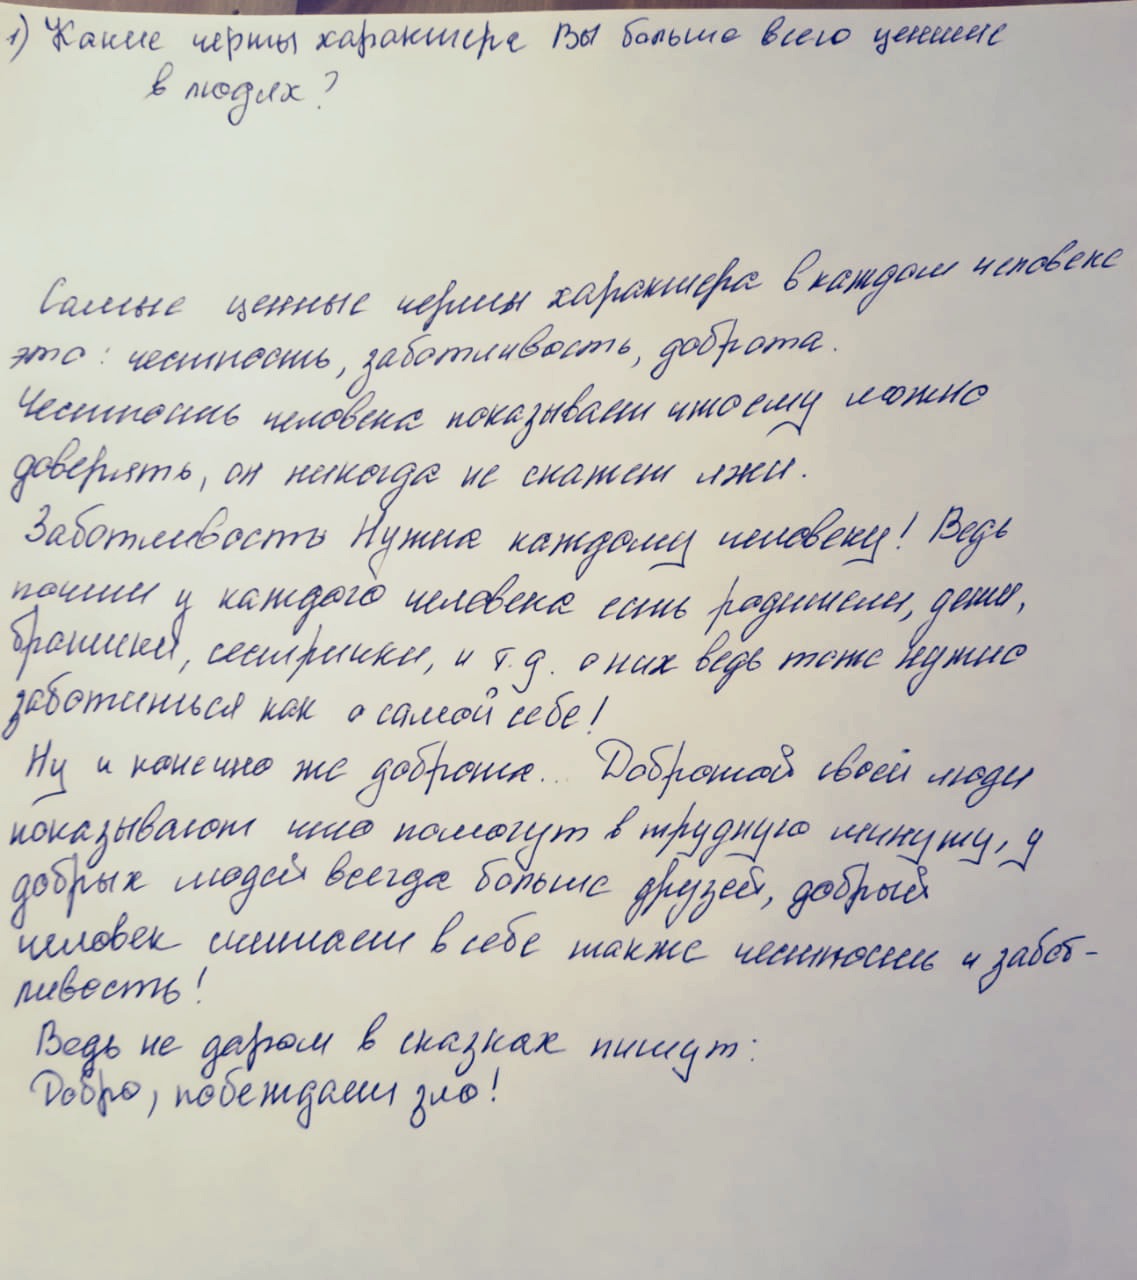 1) Какие черты характера Вы больше всего цените
в людях?
Самые ценные черты характера в каждом человеке
это: честность, заботливость, доброта.
Честность человека показывает что ему можно
доверять, он никогда не скажет лжи.
Заботливость Нужна каждому человеку! Ведь
почти у каждого человека есть родители, дети,
братишки, сестрички, и т.д. о них ведь тоже нужно
заботиться как о самой себе!
Ну и конечно же доброта... Добротой своей люди
показывают что помогут в трудную минуту, у
добрых людей всегда больше друзей, добрый
человек считает в себе также честность и забот-
ливость!
Ведь не даром в сказках пишут:
Добро, побеждает зло!